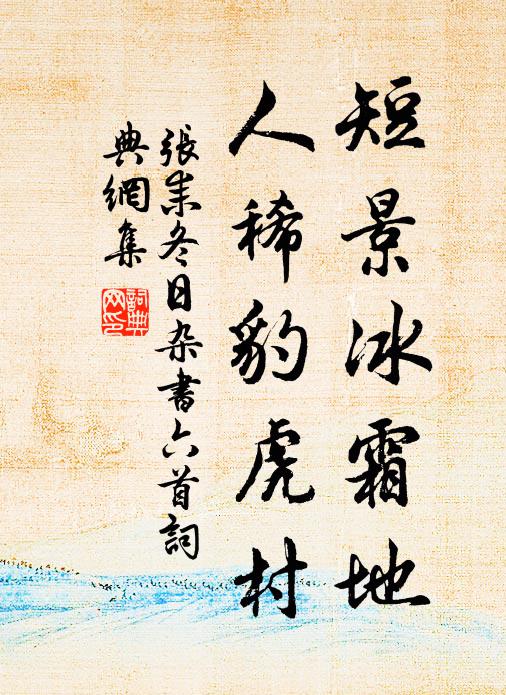 短景冰霜地
人稀豹虎村
張耒冬日杂書六首詞
典網集
詞典
网印